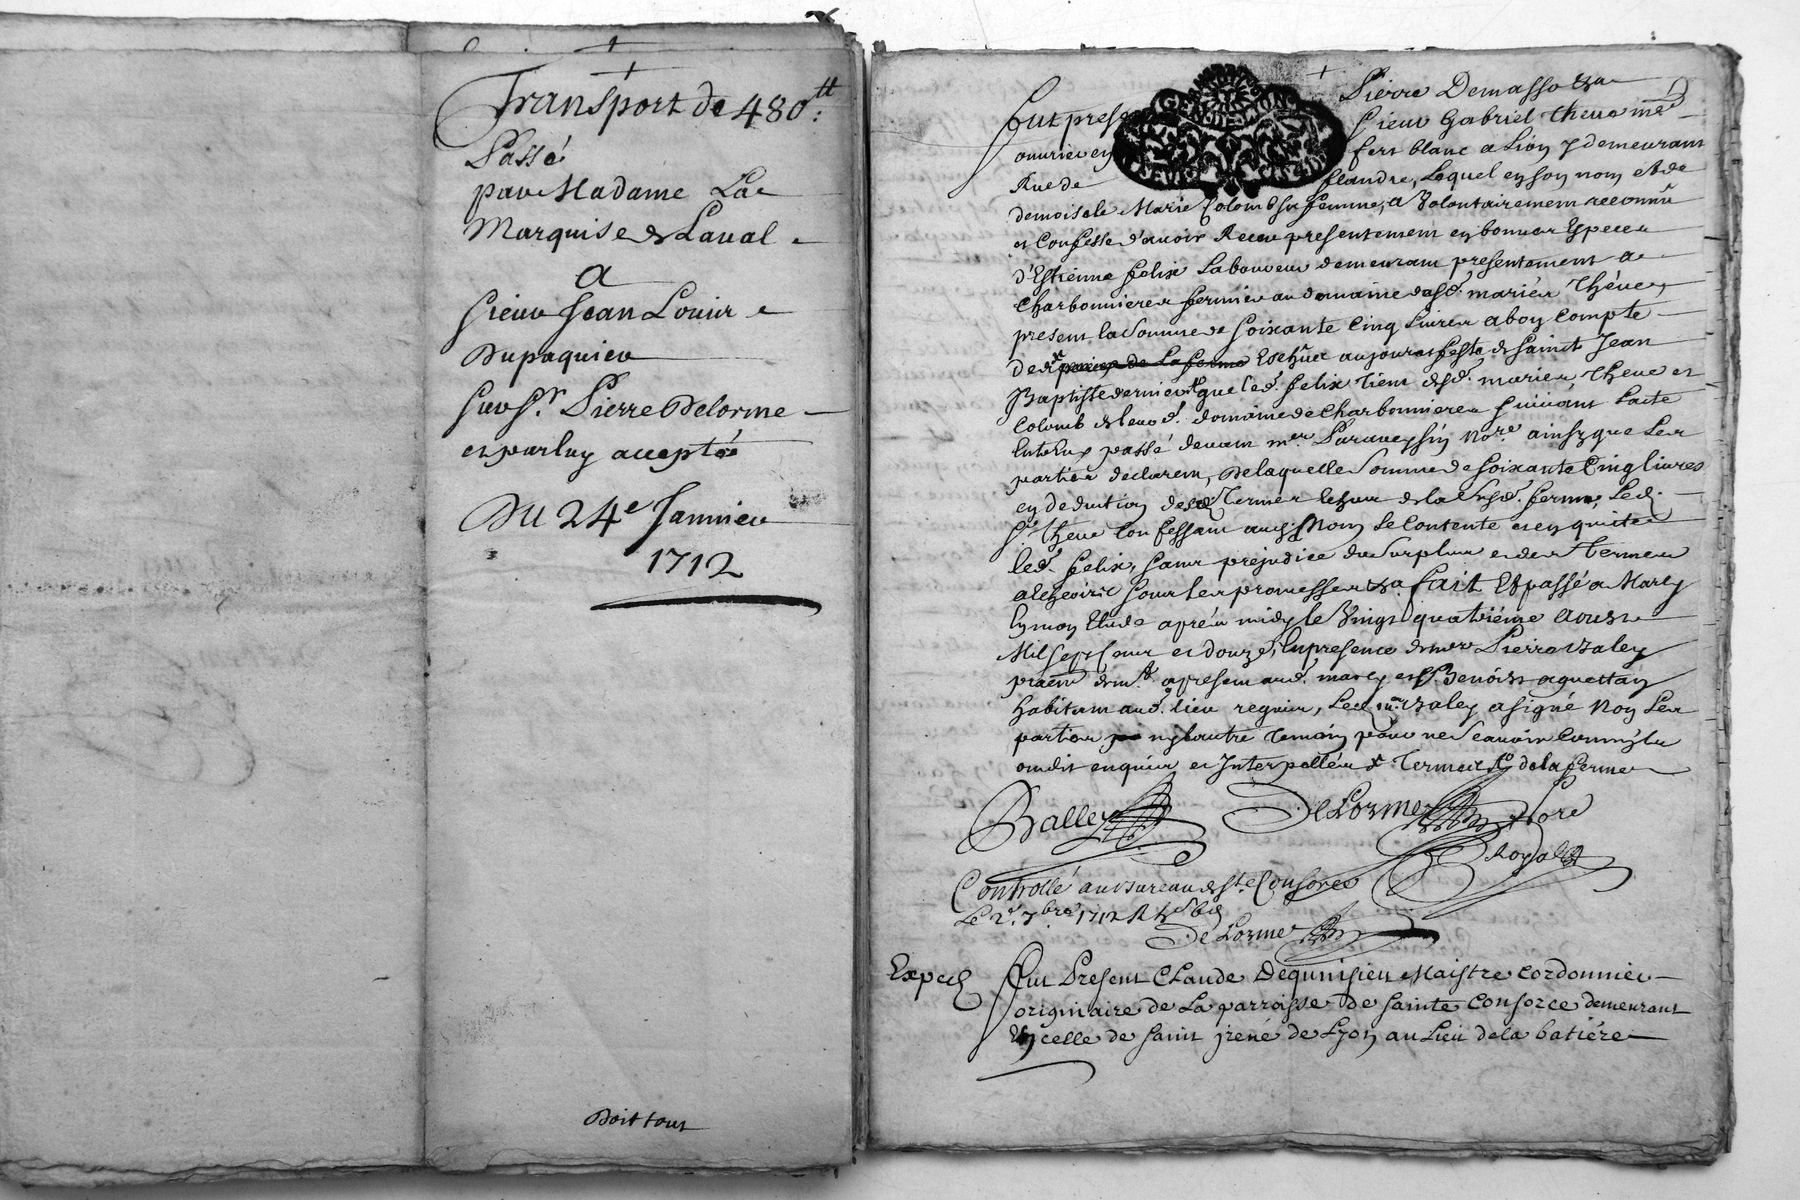 Transport de 480 ₶:
Passé
par Madame La
Marquise de Laval
A
sieur Jean Louis
Dupaquier
sur Sr. Pierre Delorme
et par luy accepté
Du 24e Janvier
1712
Doit tout
Pierre Demasso &a
fut
sieur Gabriel Theve me
ouvrier en fert blanc a Lion y demeurant
Rue de flandre, Lequel en son nom et de
demoiselle Marie Colomb sa femme, a Volontairement reconnu
et Confesse d'avoir Receu presentement en bonnes Especes
d'Estienne felix Laboureur demeurant presentement a
Charbonnieres fermier au domaine desd. mariés Theve,
present la somme de soixante Cinq Livres a bon Compte
de la ferme Escheuer au jour et feste de saint Jean
Baptiste dernier que led. felix tient desd. mariés Theve et
Colomb de leurd. domaine de Charbonnieres suivant Lacte
passé devant me ainsy que Les
parties declarent, De laquelle somme de soixante Cinq livres
en deduction de la ferme, Led.
sr. Theve Confessant aud. Nom se Contente et en quitte
led. felix, sans prejudice du surplus et des Termes
a lescheoir sour les promesses &a. fait Et passé a Marcy
En mon Etude aprés midy le Vingt quatriéme aoust
Mil sept Cent et douze, En presence de me Pierre Baley
a present aud. marcy et Sr. Benoist
habitant aud. lieu requis, Led. Baley a signé Non Les
parties ny Lautre Temoin pour ne scavoir Comme ils
ont dit enquis et Interpellés de la ferme
Balley De Lorme Nore
Royal
Controllé au Bureau de Ste. Consorce
Le 2e. 7bre 1712 R
De Lorme
Exped
Fut Present Claude Dequinsieu Maistre cordonnier
originaire de La parroisse de sainte Consorce demeurant
En celle de saint jrené de Lyon au Lieu de la batiére